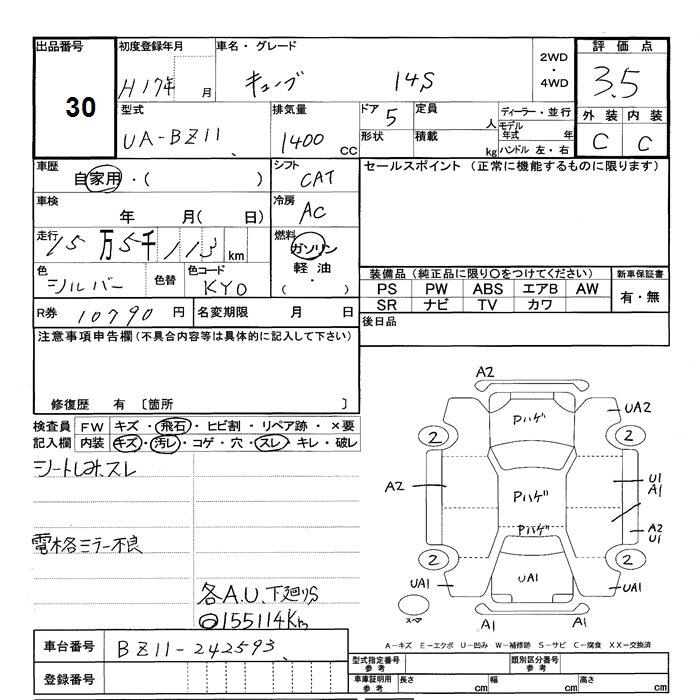 出品番号 初度登録年月 車名・グレード 2WD・4WD 評価点
30 H17年 月 キューブ 14S 3.5
型式 排気量 ドア 5 定員 人 ディーラー・並行 外装 内装
UA-BZ11 1400 CC 形状 積載 kg モデル年式 年 ハンドル 左・右 C C
車歴 自家用・( ) シフト CAT セールスポイント (正常に機能するものに限ります)
車検 年 月( 日) 冷房 AC
走行 15万5千113 km 燃料 ガソリン 軽油 ( ・ )
色 シルバー 色替 色コード KY0 装備品 (純正品に限り〇をつけてください) 新車保証書
PS PW ABS エアB AW 有・無
SR ナビ TV カワ
R券 10790 円 名変期限 月 日 後日品
注意事項申告欄 (不具合内容等は具体的に記入して下さい)
修復歴 有 〔箇所 〕
検査員 FW キズ・飛石・ヒビ割・リペア跡・×要
記入欄 内装 キズ・汚レ・コゲ・穴・スレ・キレ・破レ
シートしみ、スレ
電格ミラー不良
各A.U.下廻りS
◎155114Km
A2
Pハゲ UA2
2 2
A2 Pハゲ U1 A1
Pハゲ A2 U1
2 2
UA1 UA1 UA1
スペア A1 A1
A-キズ E-エクボ U-凹み W-補修跡 S-サビ C-腐食 XX-交換済
車台番号 BZ11-242593 型式指定番号 参考 類別区分番号 参考
登録番号 車庫証明用 参考 長さ cm 幅 cm 高さ cm